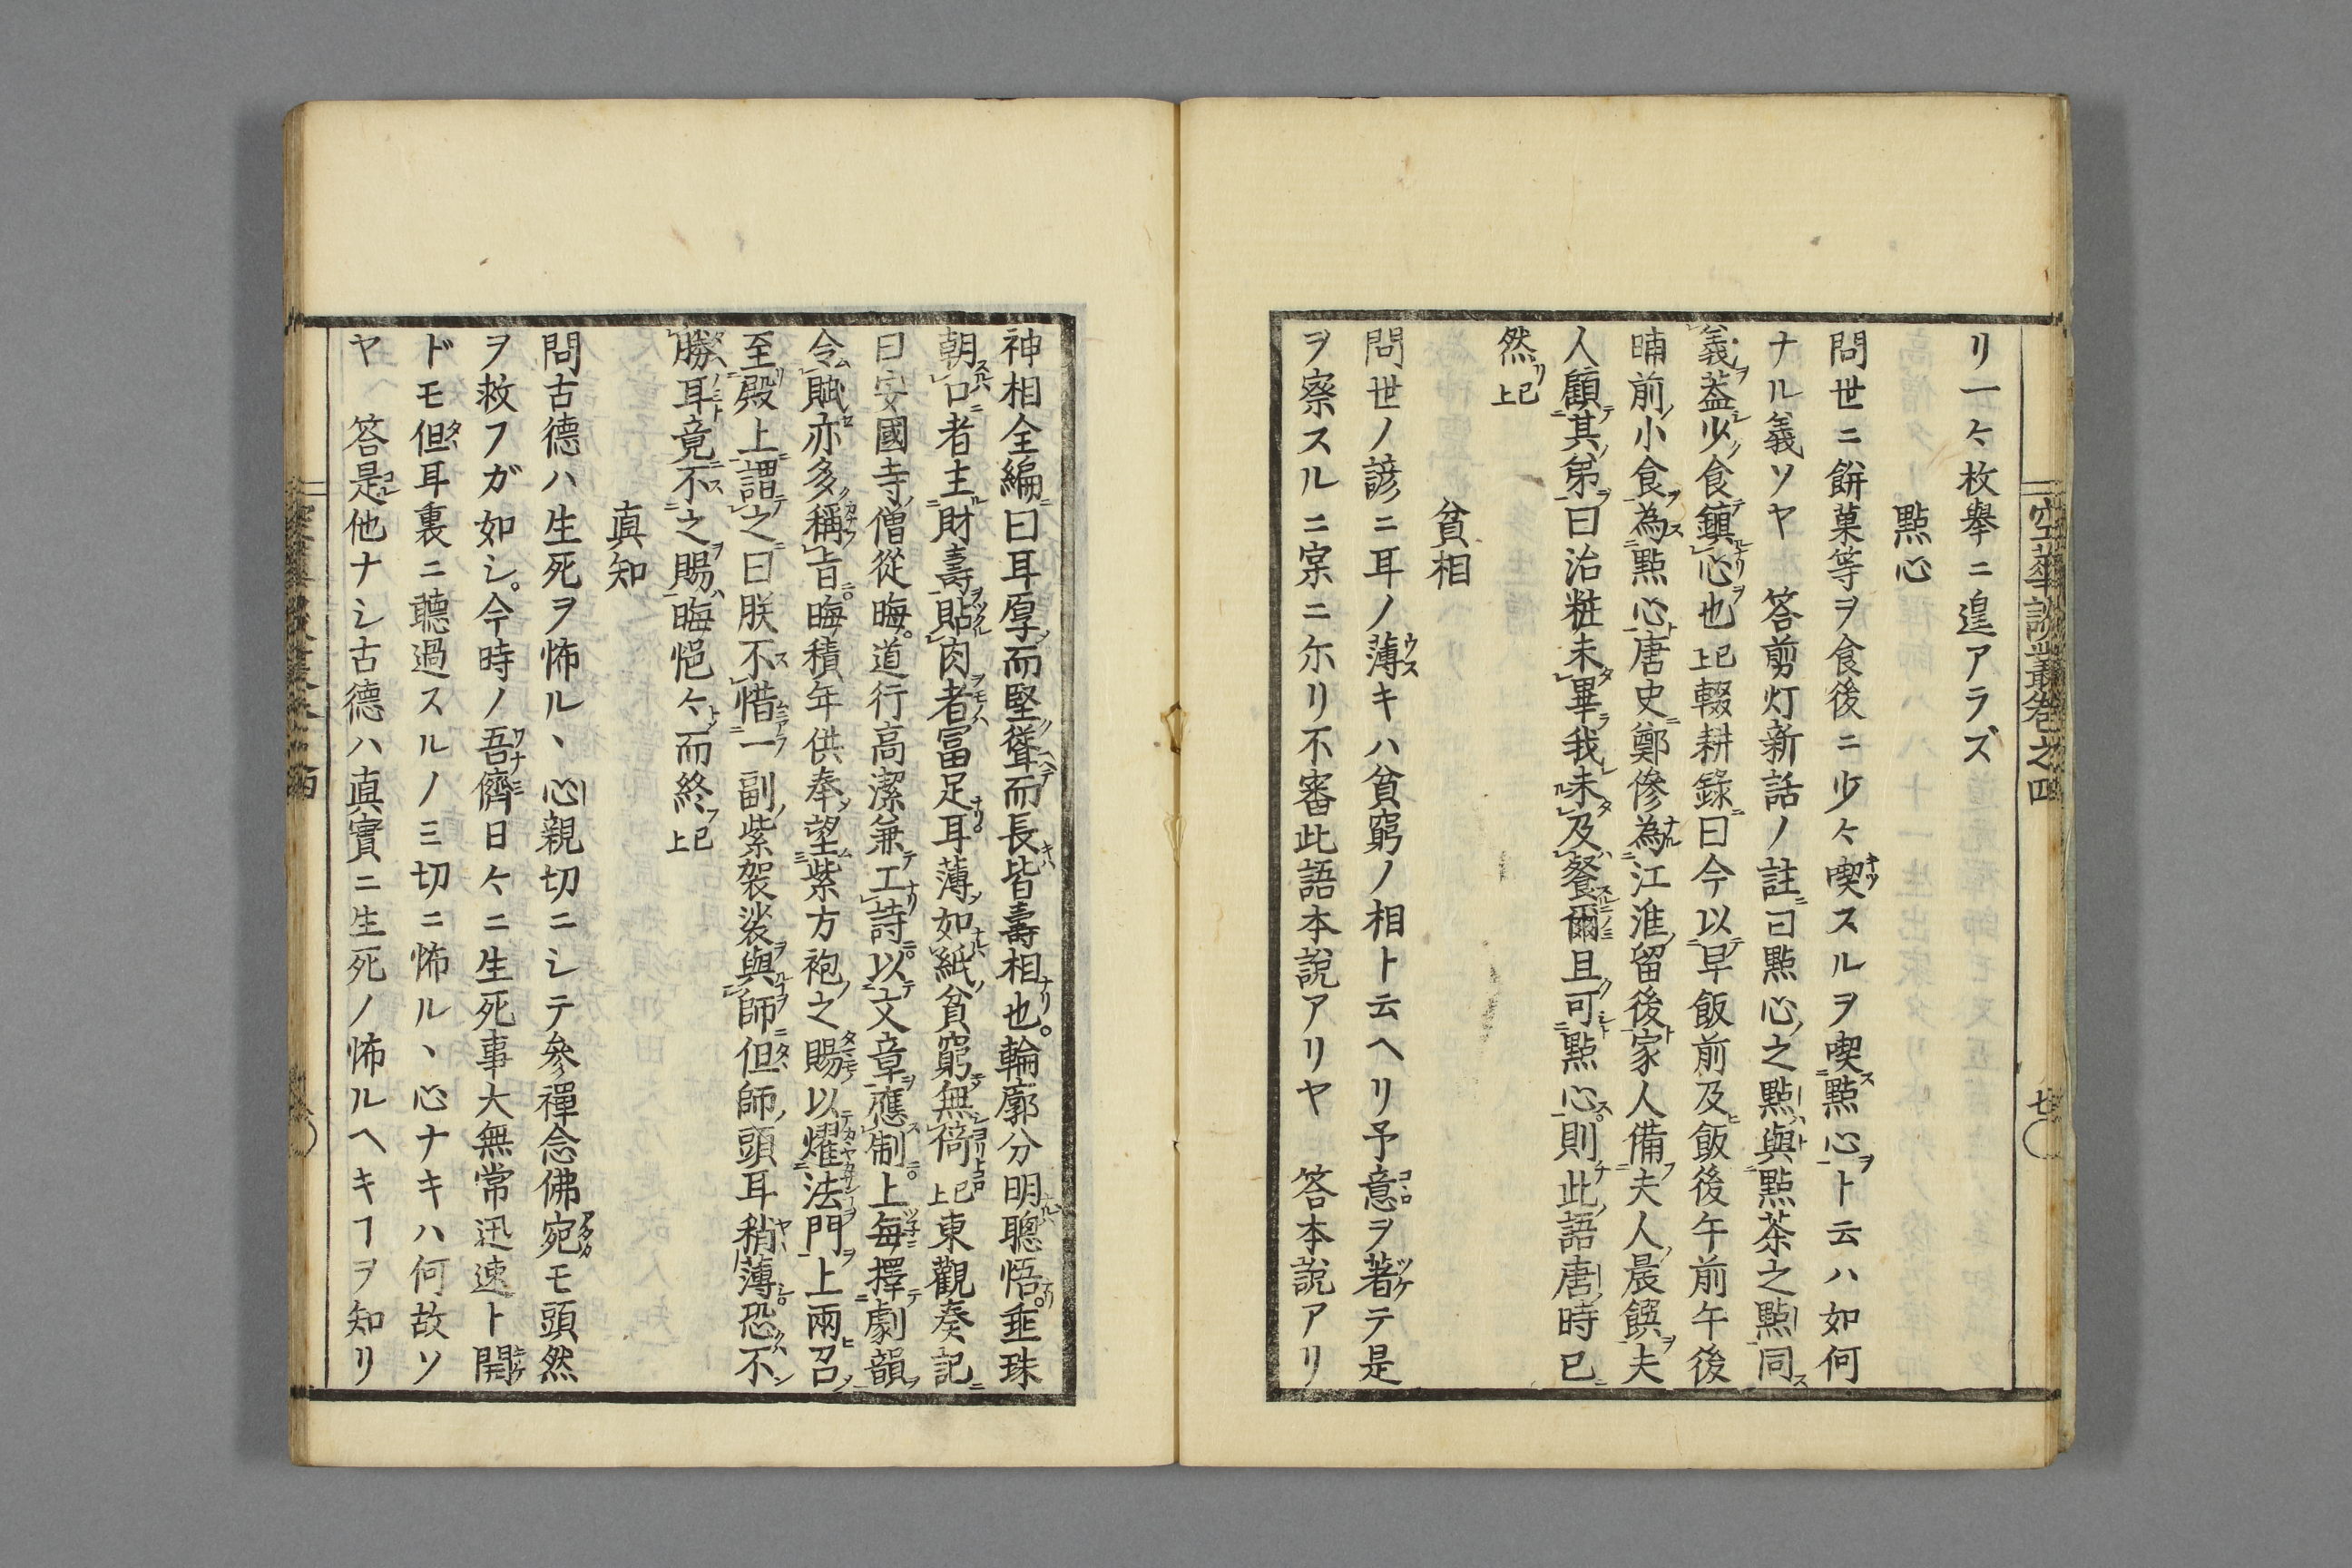 空華談叢卷之四
七
リ一々枚舉ニ遑アラズ
點心
問世ニ餅菓等ヲ食後ニ少々喫スルヲ喫點心ト云ハ如何
ナル義ソヤ　答剪灯新話ノ註ニ曰點心ノ之點與點茶之點同
義蓋少食鎮心也已上輟耕錄曰今以早飯前及飯後午前午後
晡前小食為點心唐史鄭傪為江淮留後家人備夫人晨饌夫
人顧其弟曰治粧未畢我未及餐爾且可點心則此語唐時已
然已上
貧相
問世ノ諺ニ耳ノ薄キハ貧窮ノ相ト云ヘリ予意ヲ著テ是
ヲ察スルニ寀ニ尓リ不審此語本說アリヤ　答本說アリ
神相全編曰耳厚而堅聳而長皆壽相也。輪廓分明聰悟。垂珠
朝口者主財壽貼肉者冨足耳薄如紙貧窮無倚已上東觀奏記
曰安國寺僧從晦。道行高潔兼工詩。以文章應制。上每擇劇韻
令賦亦多稱旨。晦積年供奉望紫方袍之賜以燿法門上兩召
至殿上謂之曰朕不惜一副紫袈裟與師但師頭耳稍薄恐不
勝耳竟不之賜晦悒々而終已上
真知
問古德ハ生死ヲ怖ル、心親切ニシテ參禪念佛宛モ頭然
ヲ救フガ如シ。今時ノ吾儕日々ニ生死事大無常迅速ト開
ドモ但耳裏ニ聽過スルノミ切ニ怖ル、心ナキハ何故ソ
ヤ　答是他ナシ古德ハ真實ニ生死ノ怖ルヘキヿヲ知リ